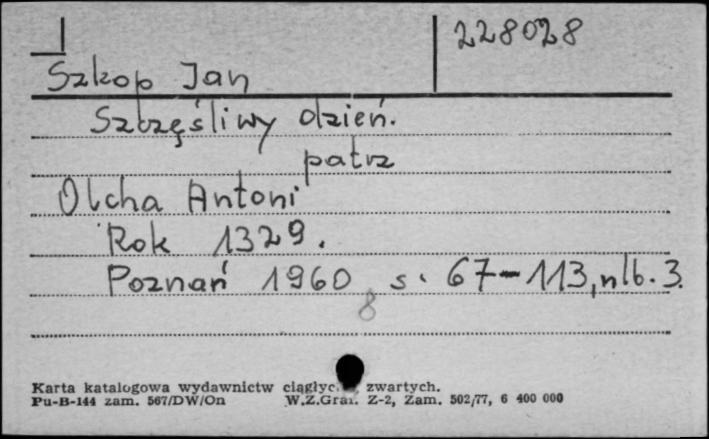 228028
Szkop Jan
Szczęśliwy dzień.
patrz
Olcha Antoni
Rok 1329.
Poznań 1960 s. 67-113, nlb. 3.
8
Karta katalogowa wydawnictw zwartych.
Pu-B-144 zam. 567/DW/On W.Z.Graf. Z-2, Zam. 502/77, 6 400 000